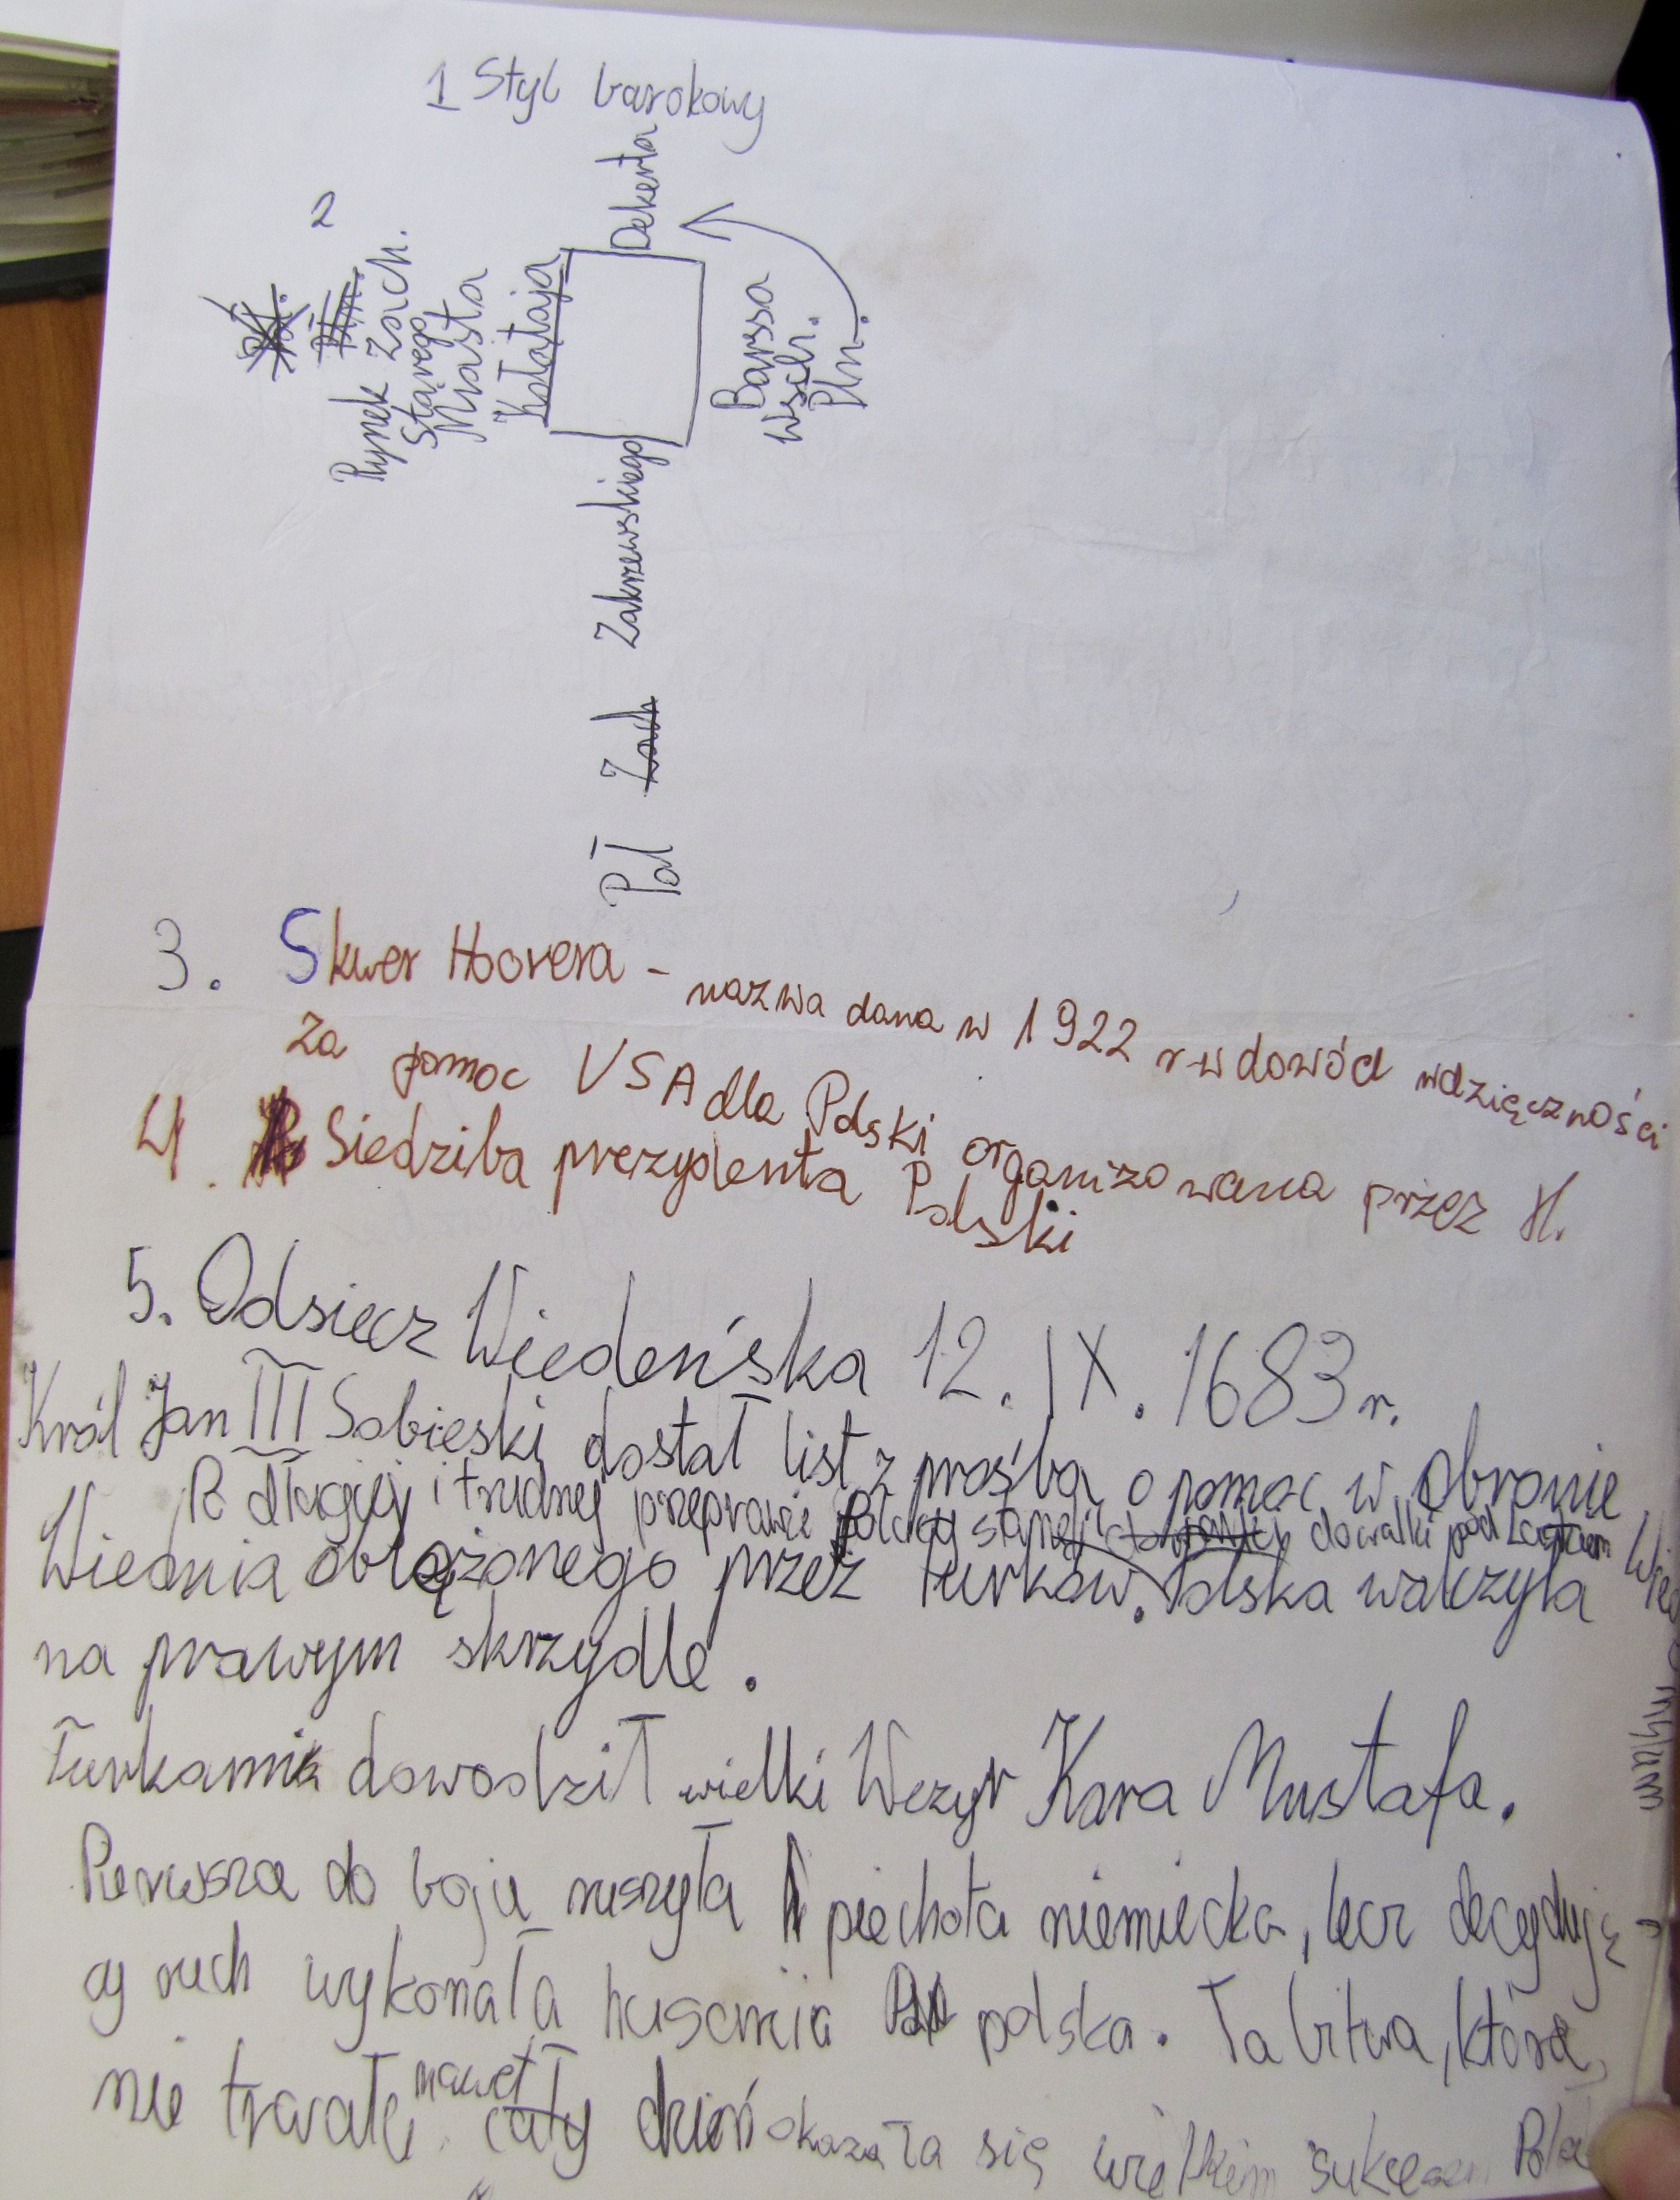 1 Styl barokowy
2
Rynek Zach.
Starego
Miasta
Kołątaja
Dekerta
Barssa
Wsch.
Płn.
Zakrzewskiego
Zach
Poł
3. Skwer Hoovera - nazwa dana w 1922 r w dowód wdzięczności
za pomoc USA dla Polski organizowana przez H.
4. Siedziba prezydenta Polski
5. Odsiecz Wiedeńska 12. IX. 1683 r.
Król Jan III Sobieski dostał list z prośbą o pomoc w obronie
Po długiej i trudnej przeprawie Polacy stanęli do walki pod
Wiednia oblążonego przez turków. Polska walczyła
na prawym skrzydle.
Turkami dowodził wielki Wezyr Kara Mustafa.
Pierwsza do boju ruszyła piechota niemiecka, lecz decydują
cy ruch wykonała husaria polska. Ta bitwa, która
nie trwała nawet cały dzień okazała się wielkim sukcesem